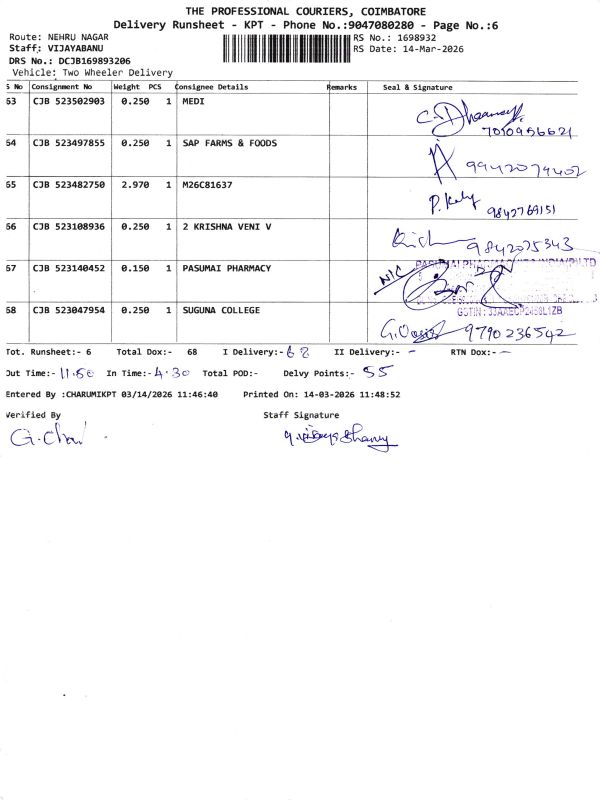 THE PROFESSIONAL COURIERS, COIMBATORE
Delivery Runsheet - KPT - Phone No.:9047080280 - Page No.:6
Route: NEHRU NAGAR RS No.: 1698932
Staff: VIJAYABANU RS Date: 14-Mar-2026
DRS No.: DCJB169893206
Vehicle: Two Wheeler Delivery
S No Consignment No Weight PCS Consignee Details Remarks Seal & Signature
63 CJB 523502903 0.250 1 MEDI
7010956621
64 CJB 523497855 0.250 1 SAP FARMS & FOODS
9942079402
65 CJB 523482750 2.970 1 M26C81637
9842769151
66 CJB 523108936 0.250 1 2 KRISHNA VENI V
9842075343
67 CJB 523140452 0.150 1 PASUMAI PHARMACY
N/C
68 CJB 523047954 0.250 1 SUGUNA COLLEGE
9790236542
Tot. Runsheet:- 6 Total Dox:- 68 I Delivery:- 68 II Delivery:- - RTN Dox:- -
Out Time:- 11.50 In Time:- 4.30 Total POD:- Delvy Points:- 55
Entered By :CHARUMIKPT 03/14/2026 11:46:40 Printed On: 14-03-2026 11:48:52
Verified By Staff Signature